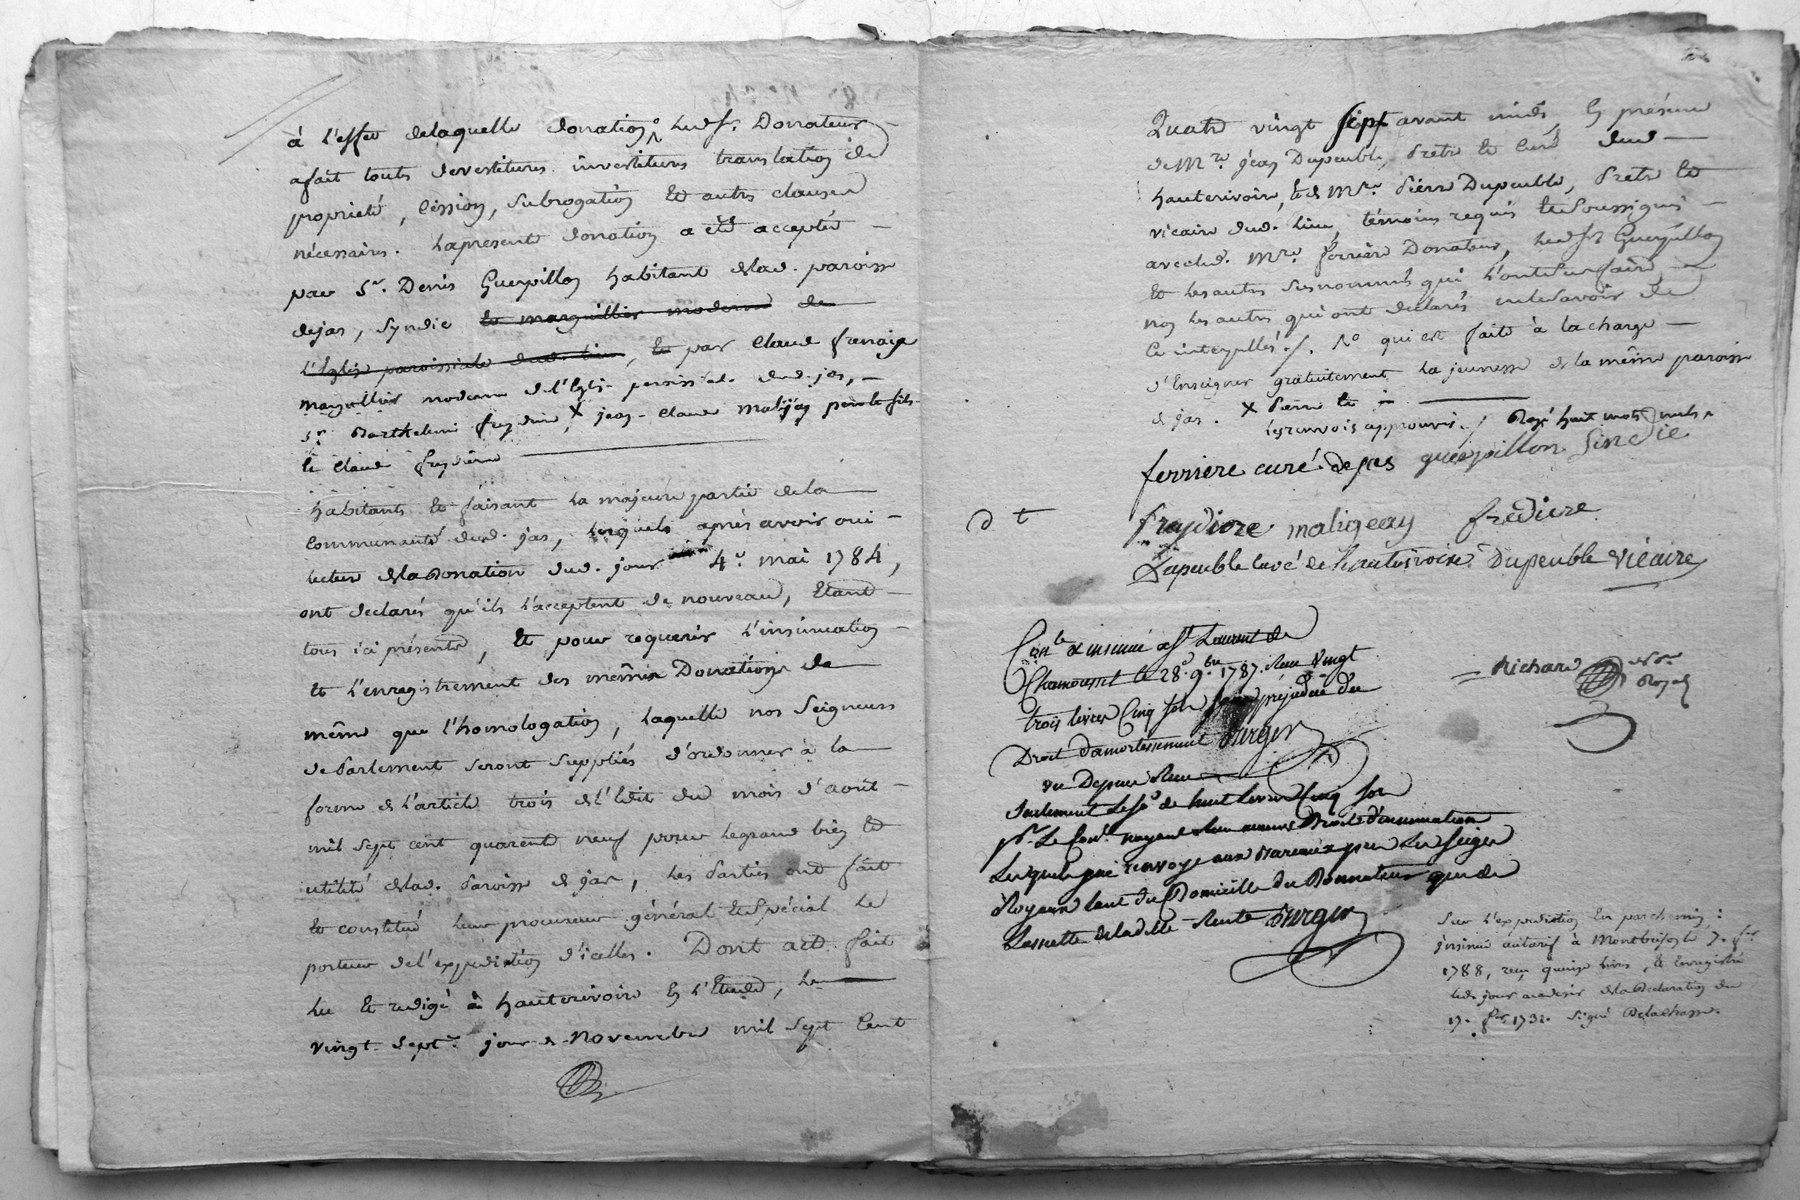 à l'effet de laquelle donation, led. sr. Donateur
a fait toute devestiture investiture translation de
proprieté, cession, subrogation et autres clauses
nécessaires. La presente donation a été acceptée
par sr. Denis Guerpillon habitant de lad. paroisse
de jas, syndic et marguillier moderne de
l'Eglise paroissiale dud. lieu, et par Claude
marguillier moderne de l'Eglise paroissiale dud. jas,
sr. Barthelemi freydiere, X jean-Claude Malijay fils
et Claude freydiere
habitants et faisant la majeure partie de la
communauté dud. jas, lesquels après avoir oui
lecture de la Donation dud. jour 4e. mai 1784,
ont declarés qu'ils l'acceptent de nouveau, Etant
tous ici présents, Et pour requerir l'insinuation
et l'enregistrement des mêmes Donations de
même que l'homologation, laquelle nos Seigneurs
de Parlement seront suppliés d'ordonner à la
forme de l'article trois de l'Edit du mois d'août
mil sept cent quarente neuf pour le grand bien et
utilité de lad. Paroisse de jas, les Parties ont fait
et constitué leur procureur général et Spécial le
porteur de l'expedition d'icelles. Dont acte fait
lu et redigé à hauterivoire En l'Etude, le
vingt-sept. jour de Novembre mil sept Cent
Quatre vingt sept avant midi, En présence
de Mre. jean Dupeuble, Prêtre et curé dud.
hauterivoire, et de Mre. Pierre Dupeuble, Prêtre et
vicaire dud. lieu, témoins requis et Soussignés
avec led. Mre. ferriere Donateur, led. sr. Guerpillon
et les autres susnommés qui l'ont su faire,
non les autres qui ont declarés ne le savoir de
ce interpellés ./. Ro qui est faite à la charge
d'Enseigner gratuitement la jeunesse de la même paroisse
de jas. X Pierre et
les renvois approuvés ./ Rayé huit mots nuls
ferriere curé de jas guerpillon Sindic
freydiere maligeay frediere
Dupeuble curé de hauterivoire Dupeuble vicaire
Conlé & insinué a St. Laurent de
Chamousset le 28. 9bre 1787. Reçu Vingt
trois livres Cinq sols sans préjudice du
Droit d'amortissement Durger
Reçu
seulement La so. de huit livres Cinq sols
pr. Le Conle. n'ayant Reçu aucuns Droits d'insinuation
Lesquels j'ai renvoyé aux Bureaux
du Domicille du Donateur que de
Lassiette de ladite Rente Durger
Richard Nore.
Royal
Sur l'expedition En parchemin :
insinué au tarif à Montbrison le 7. fer.
1788, reçu quinze livres, et Enregistré
led. jour au desir de la Declaration du
17. fer. 1731. Signé Delachasse.